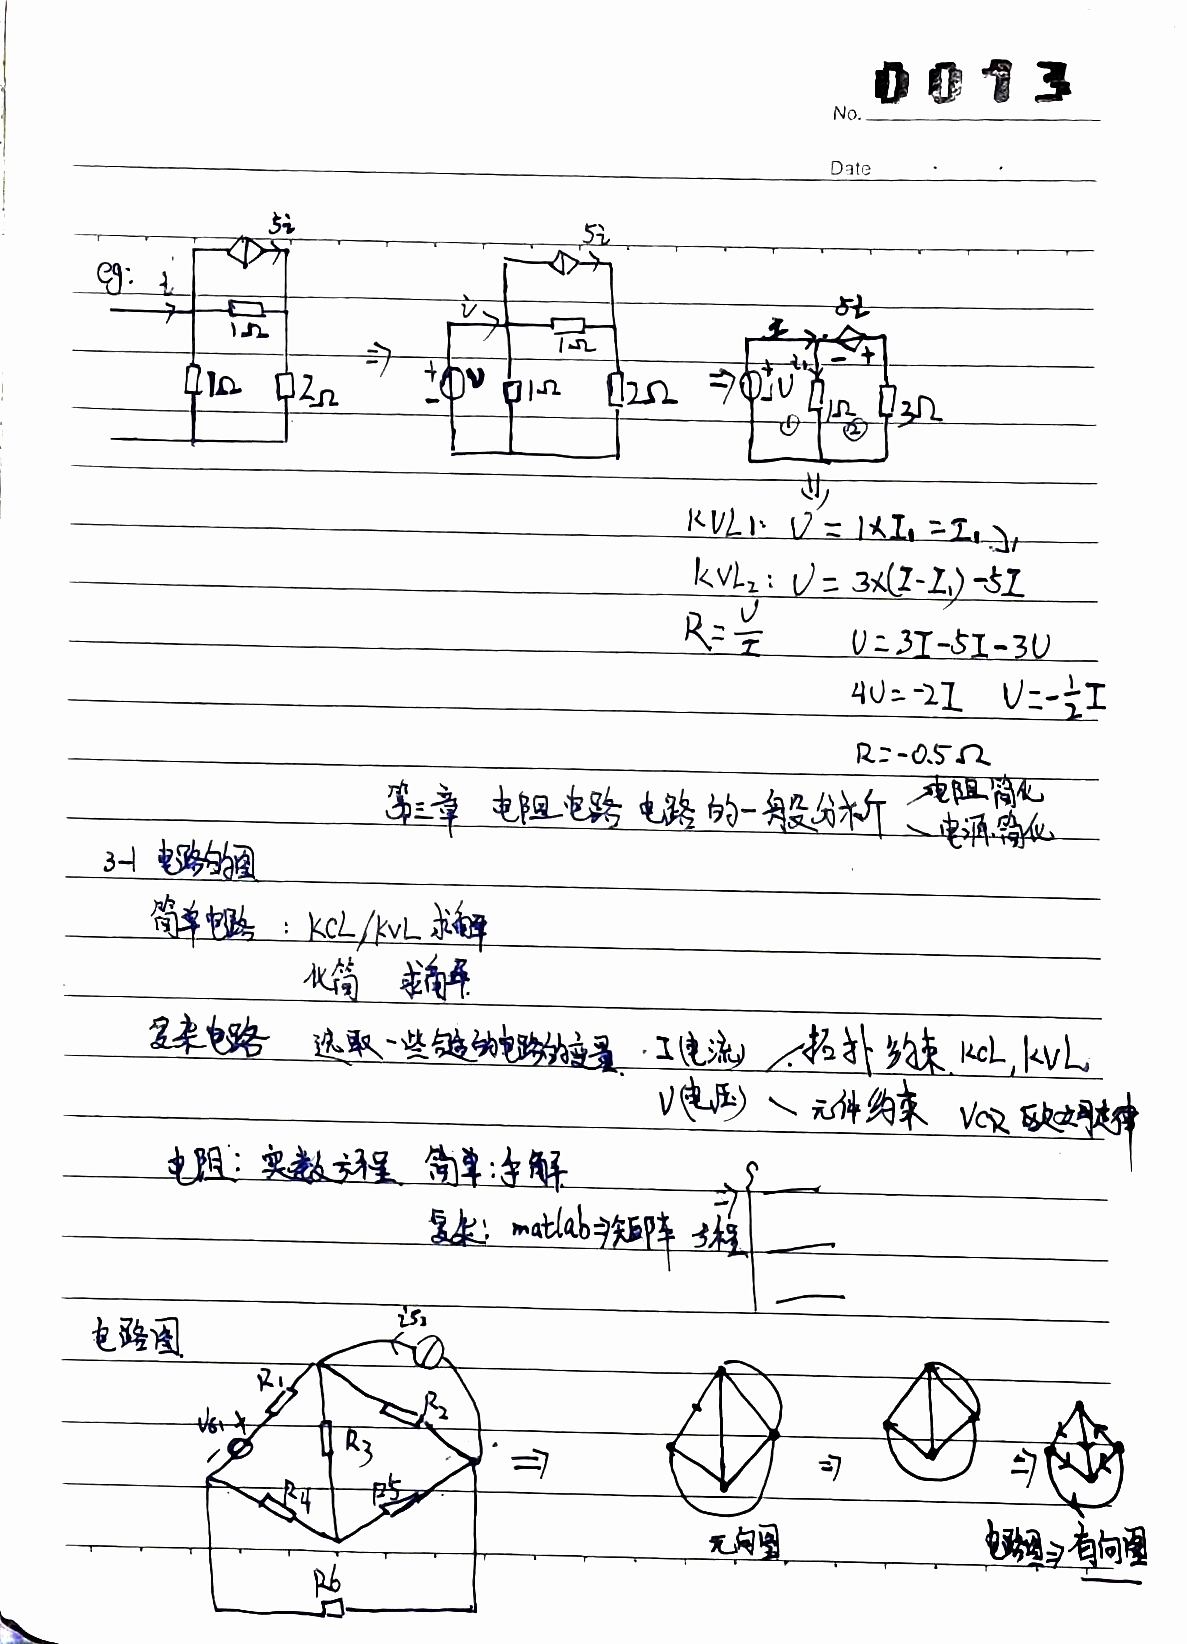 0073
No.
Date
eg:
i
5i
1Ω
1Ω
2Ω
⇒
i
5i
1Ω
+
-
U
1Ω
2Ω
⇒
I
5I
- +
+
-
U
i₁
1Ω
3Ω
① ②
⇓
KVL1: U = 1×I₁ = I₁
KVL₂: U = 3×(I-I₁)-5I
R=U/I U=3I-5I-3U
4U=-2I U=-1/2 I
R=-0.5Ω
第三章 电阻电路 电路的一般分析 电阻简化
电源简化
3-1 电路的图
简单电路 : KCL/KVL 求解
化简 求解
复杂电路 选取一些合适的电路的变量. I(电流) 拓扑约束. KCL, KVL
U(电压) 元件约束 VCR 欧姆定律
电阻: 实数方程 简单:手解
复杂: matlab⇒矩阵 方程
⇒
电路图
R1
is2
Us1 +
-
R2
R3
R4
R5
R6
⇒
无向图
⇒
⇒
电路图⇒有向图